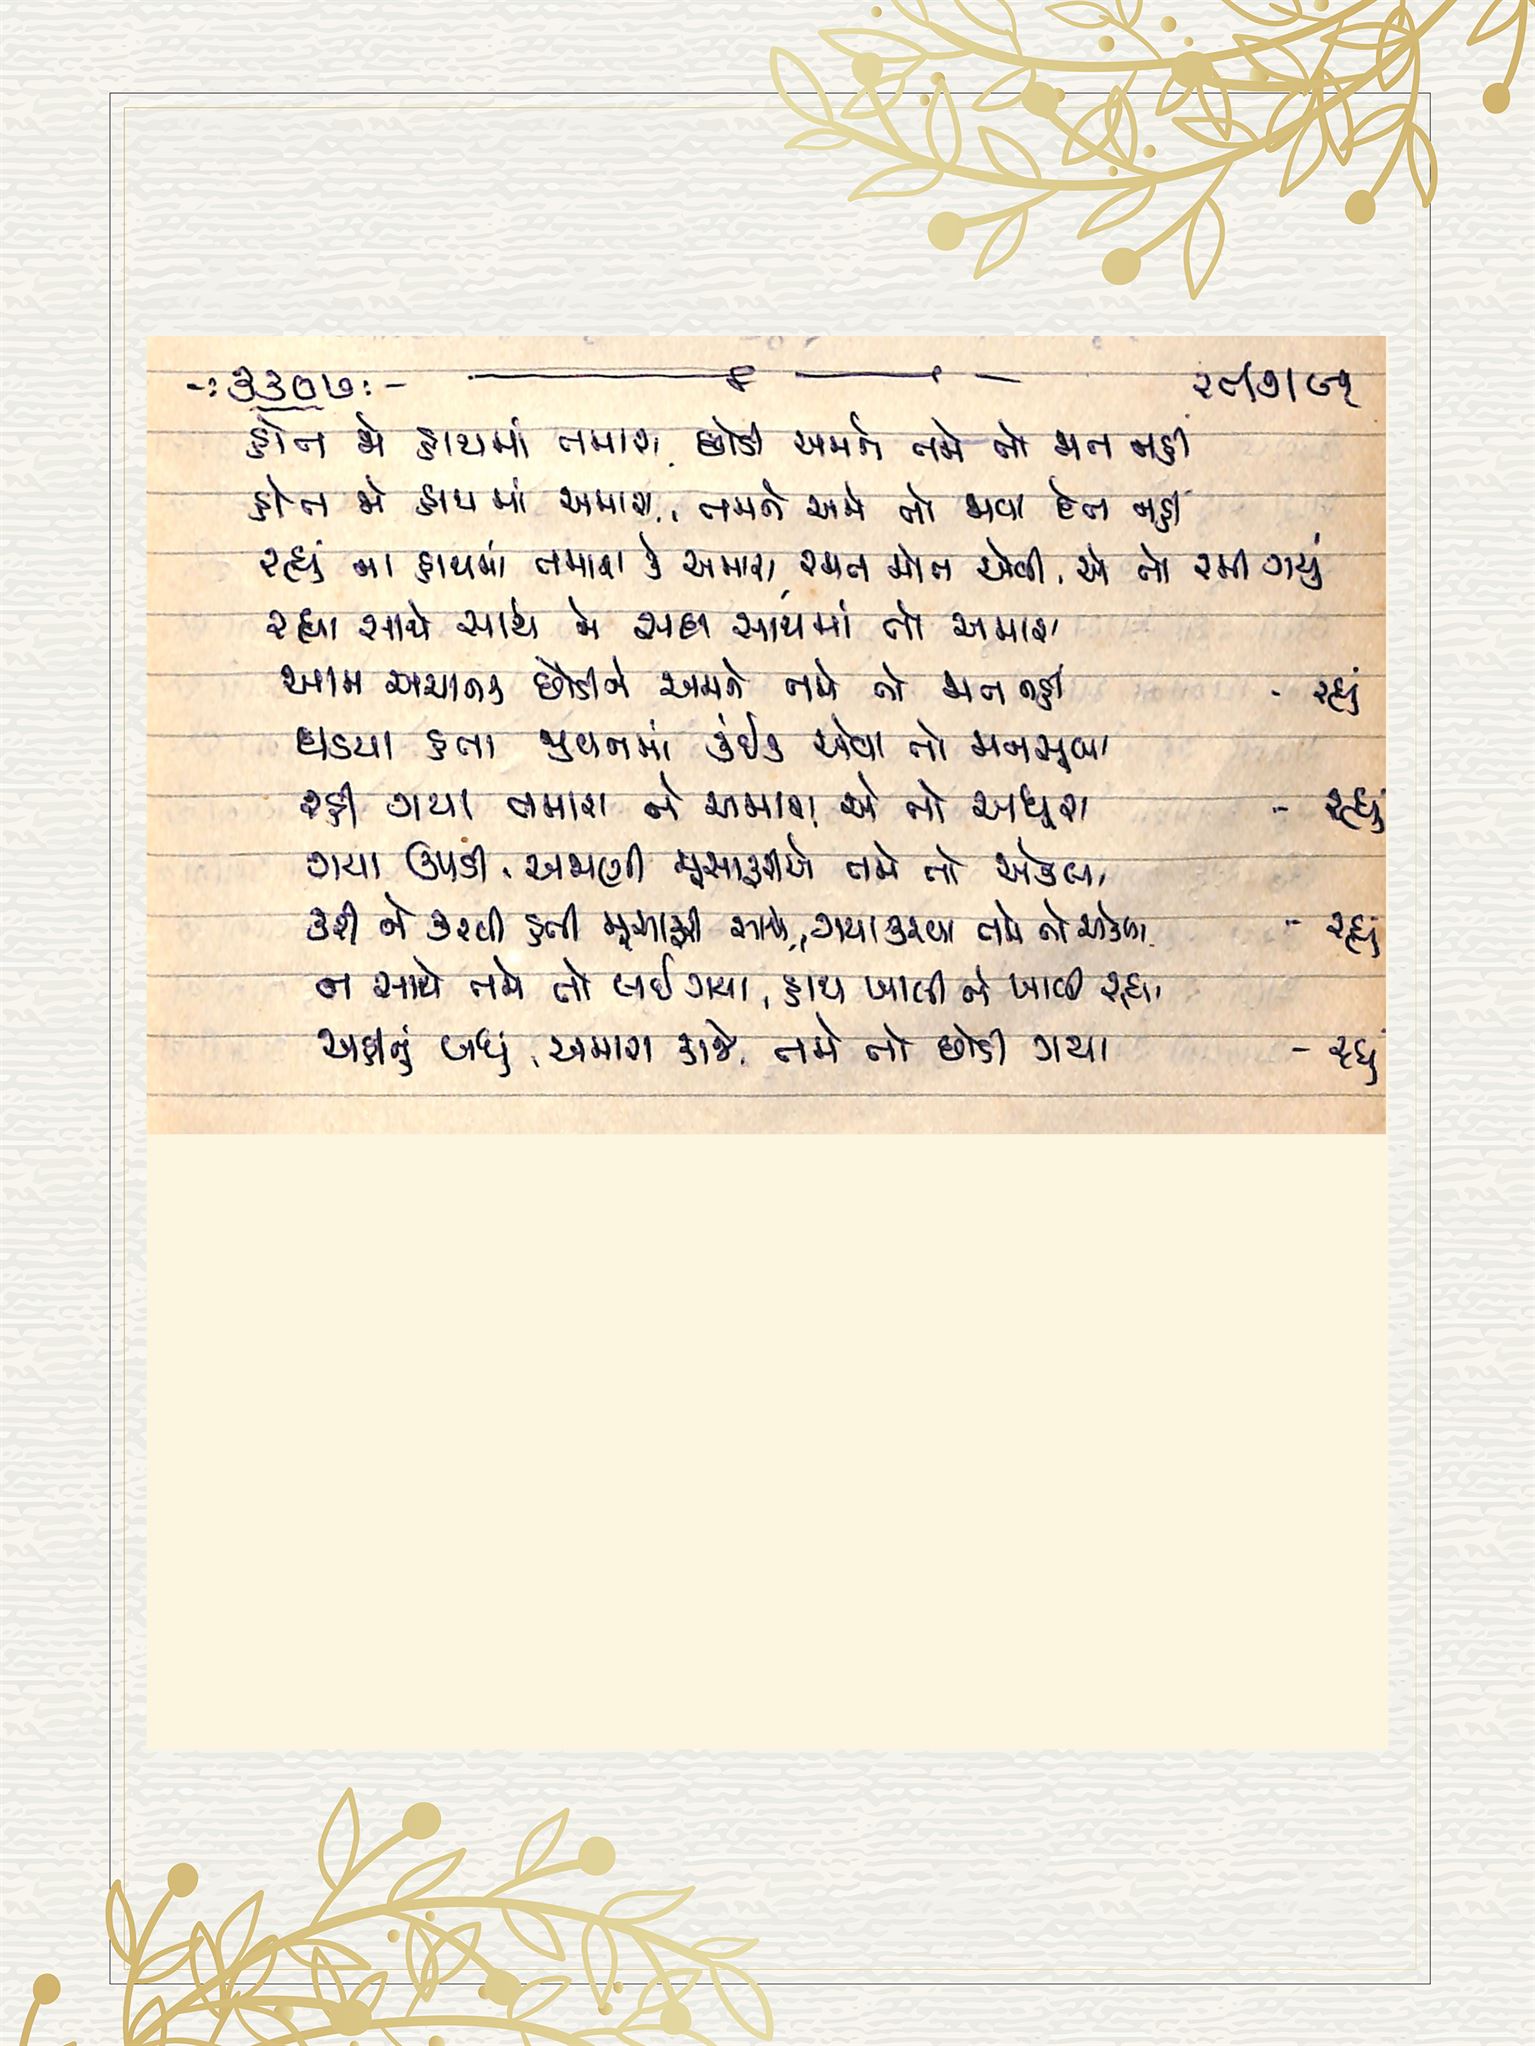 -: ૩૩૦૭ :- ૨૯/૭/૯૧
હોત જો હાથમાં તમારા, છોડી અમને તમે તો જાત નહીં
હોત જો હાથમાં અમારા, તમને અમે તો જાવા દેત નહીં
રહ્યું ના હાથમાં તમારા કે અમારા, રમત મોત એવી, એ તો રમી ગયું
રહ્યા સાથે સાથે જો સદા સાથમાં તો અમારા
આમ અચાનક છોડીને અમને તમે તો જાત નહીં - રહ્યું
ઘડયા હતા જીવનમાં કંઈક એવા તો મનસૂબા
રહી ગયા તમારા ને અમારા, એ તો અધૂરા - રહ્યું
ગયા ઉપડી, અજાણી મૂસાફરીએ તમે તો એકલા,
કરી ને કરવી હતી મૂસાફરી સાથે, ગયા કરવા તમે તો એકલા - રહ્યું
ન સાથે તમે તો લઈ ગયા, હાથ ખાલી ને ખાલી રહ્યા,
અહીંનું બધું, અમારા કાજે, તમે તો છોડી ગયા - રહ્યું